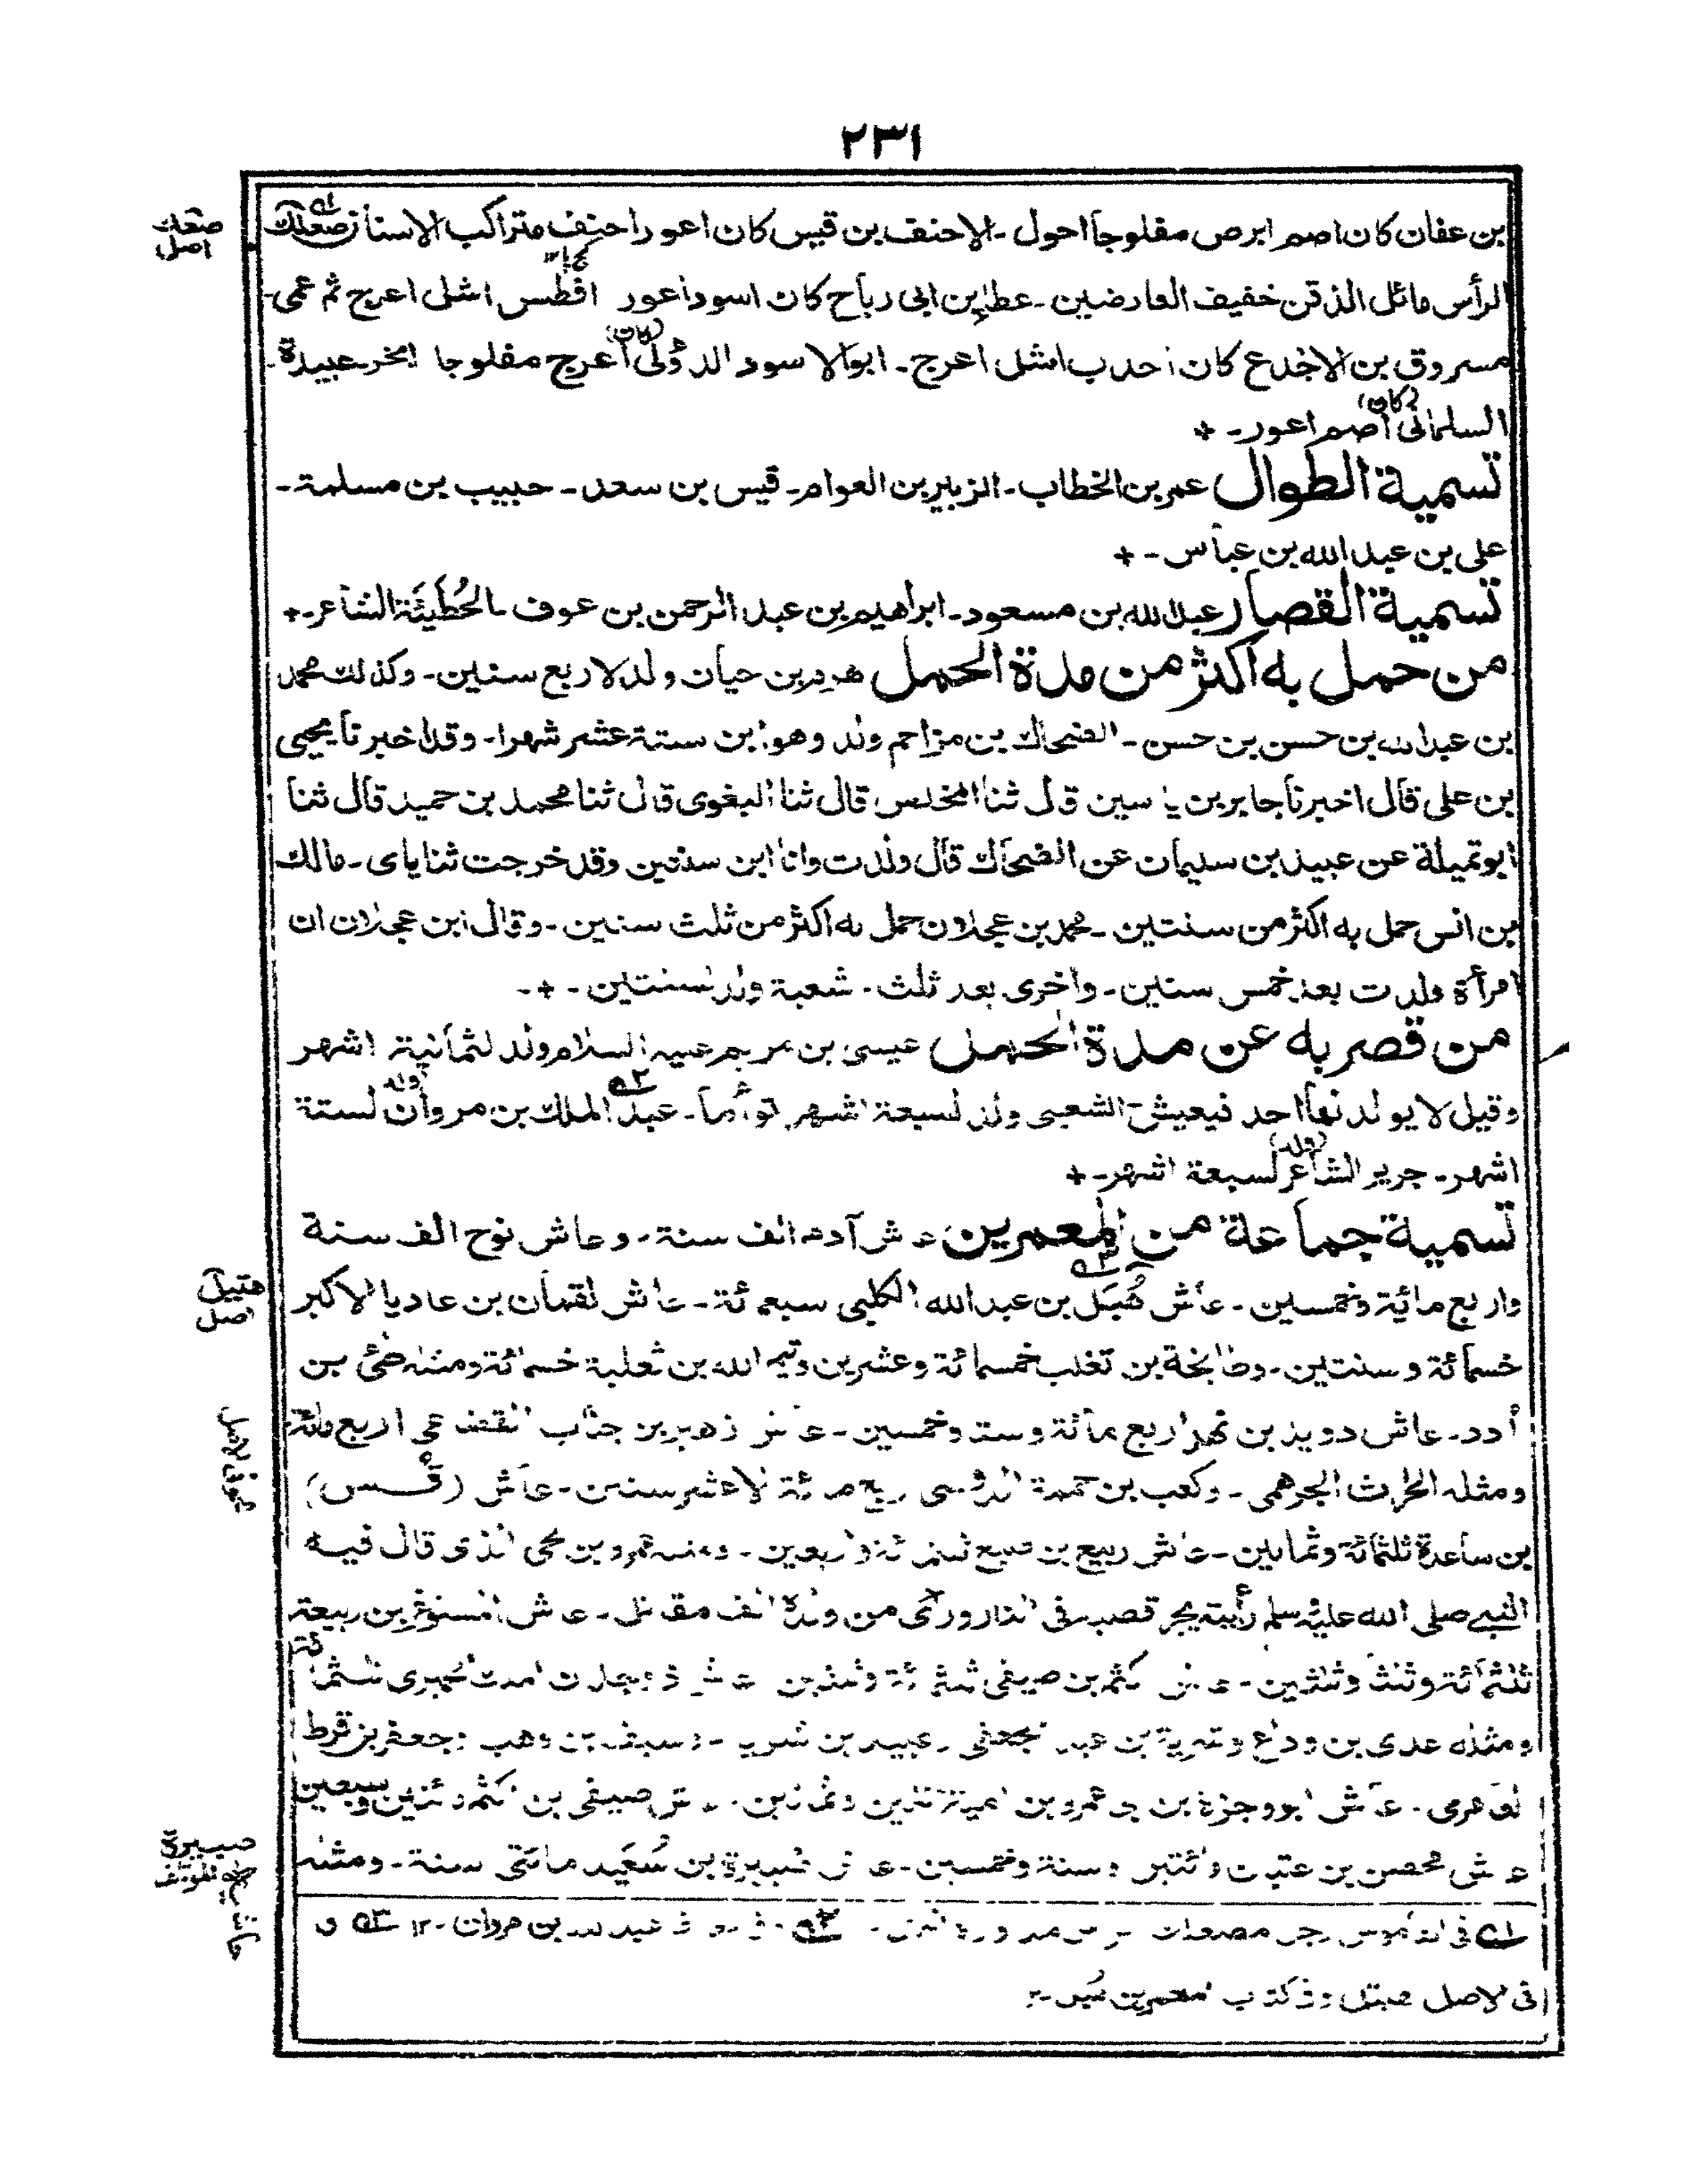 ٢٣١
بن عفان كان اصم ابرص مفلوجا احول - الاحنف بن قيس كان اعور احنف متراكب الاسنان صعلك
صعك اصل
الرأس مائل الذقن خفيف العارضين - عطاء بن ابى رباح كان اسود اعور افطس اشل اعرج ثم عمى -
مسروق بن الاجدع كان احدب اشل اعرج - ابوالاسود الدؤلى (كان) اعرج مفلوجا ابخر - عبيدة -
السلمانى (كان) اصم اعور - +
تسمية الطوال عمر بن الخطاب - الزبير بن العوام - قيس بن سعد - حبيب بن مسلمة -
على بن عبد الله بن عباس - +
تسمية القصار عبد الله بن مسعود - ابراهيم بن عبد الرحمن بن عوف - الحُطَيئَة الشاعر - +
من حمل به اكثر من مدة الحمل هرم بن حيان ولد لاربع سنين - وكذلك محمد
بن عبد الله بن حسن بن حسن - الضحاك بن مزاحم ولد وهو ابن ستة عشر شهرا - وقد اخبرنا يحيى
بن على قال اخبرنا جابر بن ياسين قال ثنا المخلص قال ثنا البغوى قال ثنا محمد بن حميد قال ثنا
ابو تميلة عن عبيد بن سليمان عن الضحاك قال ولدت وانا ابن سنتين وقد خرجت ثناياى - مالك
بن انس حمل به اكثر من سنتين - محمد بن عجلان حمل به اكثر من ثلث سنين - وقال ابن عجلان ان
امرأة ولدت بعد خمس سنين - واخرى بعد ثلث - شعبة ولد لسنتين - + -
من قصر به عن مدة الحمل عيسى بن مريم عليه السلام ولد لثمانية اشهر
وقيل لا يولد لها احد فيعيش الشعبى ولد لسبعة اشهر توأما - عبد الملك بن مروان (ولد) لستة
اشهر - جرير الشاعر (ولد) لسبعة اشهر - +
تسمية جماعة من المعمرين عاش آدم الف سنة - وعاش نوح الف سنة
واربع مائة وخمسين - عاش هُبَل بن عبد الله الكلبى سبعمائة - عاش لقمان بن عاديا الاكبر
هتيل اصل
خسمائة وستين - وطابخة بن تغلب خمسمائة وعشرين وتيم الله بن ثعلبة خسمائة ومثله طئ بن
أدد - عاش دويد بن نهد اربع مائة وست وخمسين - عاش زهير بن جناب القضاعى اربع مائة
ومثله الحارث الجرهمى - وكعب بن حممة الدوسى اربع مائة الا عشر سنين - عاش (قُس)
بن ساعدة ثلثمائة وثمانين - عاش ربيع بن ضبع ثلثمائة واربعين - ومثله عمرو بن لحى الذى قال فيه
النبى صلى الله عليه وسلم رأيته يجر قصبه فى النار ورأى من ولده الف مقاتل - عاش المستوغر بن ربيعة
ثلثمائة وثلث وثلثين - عاش اكثم بن صيفى ثلثمائة وثلثين عاش
ومثله عدى بن وداع وشرية بن عبد الجعفى - عبيد بن شرية - وسيف بن وهب وجعفر بن قرط
العامرى - عاش ابو وجزة بن عاش صيفى بن اكثم مائتين وسبعين
عاش محصن بن عتبان مائتين وستة وخمسين - عاش صبيرة بن سُعَيد مائتى سنة - ومثله
صبيرة
فى القاموس رجل مصعلك الرأس مدوره عبد الملك بن مروان - ١٢
فى الاصل وفى كتاب المعمرين هبل